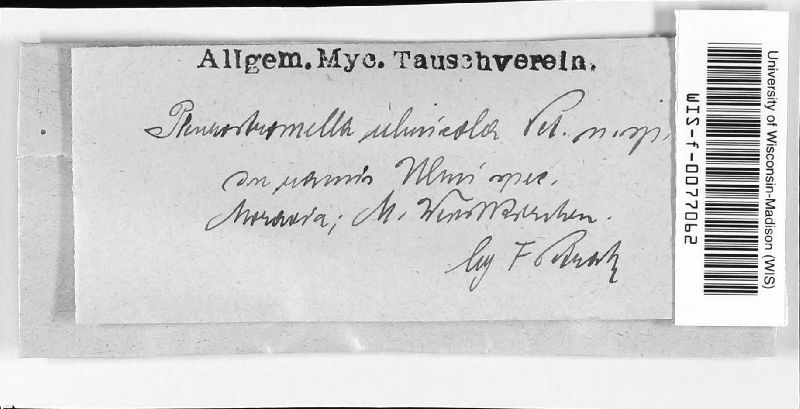 Allgem. Myc. Tauschverein.
Pleurostromella ulmicola Pet. n. sp.
in ramis Ulmi spec.
Moravia; M. Weisskirchen.
leg F Petrak
University of Wisconsin-Madison (WIS)
WIS-f-0077062